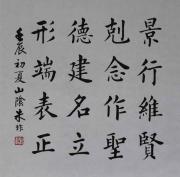 景行維賢
剋念作聖
德建名立
形端表正
壬辰初夏山陰朱